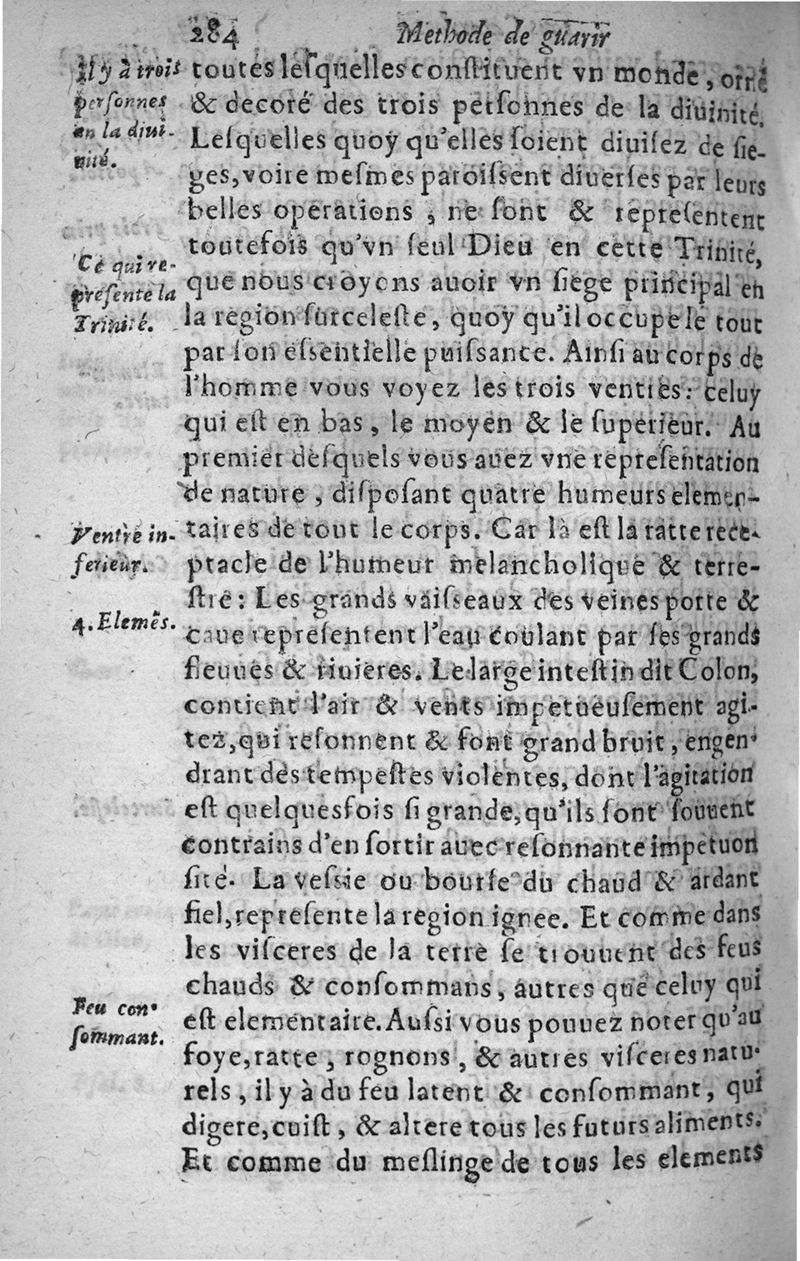 284 Methode de guarir
Il y à trois
personnes
en la diui-
nité.
toutes leſquelles conſtituent vn monde, orné
& decoré des trois perſonnes de la diuinité.
Leſquelles quoy qu'elles ſoient diuiſez de ſie-
ges, voire meſmes paroiſſent diuerſes par leurs
belles operations, ne ſont & repreſentent
toutefois qu'vn ſeul Dieu en cette Trinité,
Ce qui re-
preſente la
Trinité.
que nous croyons auoir vn ſiege principal en
la region ſurceleſte, quoy qu'il occupe le tout
par ſon eſſentielle puiſſance. Ainſi au corps de
l'homme vous voyez les trois ventres: celuy
qui eſt en bas, le moyen & le ſuperieur. Au
premier deſquels vous auez vne repreſentation
de nature, diſpoſant quatre humeurs elemen-
Ventre in-
ferieur.
taires de tout le corps. Car là eſt la ratte rece-
ptacle de l'humeur melancholique & terre-
ſtre: Les grands vaiſſeaux des veines porte &
4. Elemēs.
caue repreſentent l'eau coulant par ſes grands
fleuues & riuieres. Le large inteſtin dit Colon,
contient l'air & vents impetueuſement agi-
tez, qui reſonnent & font grand bruit, engen-
drant des tempeſtes violentes, dont l'agitation
eſt quelquesfois ſi grande, qu'ils ſont ſouuent
contrains d'en ſortir auec reſonnante impetuoſi
ſité. La veſsie ou bourſe du chaud & ardant
fiel, repreſente la region ignee. Et comme dans
les viſceres de la terre ſe trouuent des feus
chauds & conſommans, autres que celuy qui
Feu con-
ſommant.
eſt elementaire. Auſsi vous pouuez noter qu'au
foye, ratte, rognons, & autres viſceres natu-
rels, il y à du feu latent & conſommant, qui
digere, cuiſt, & altere tous les futurs aliments.
Et comme du meſlinge de tous les elements